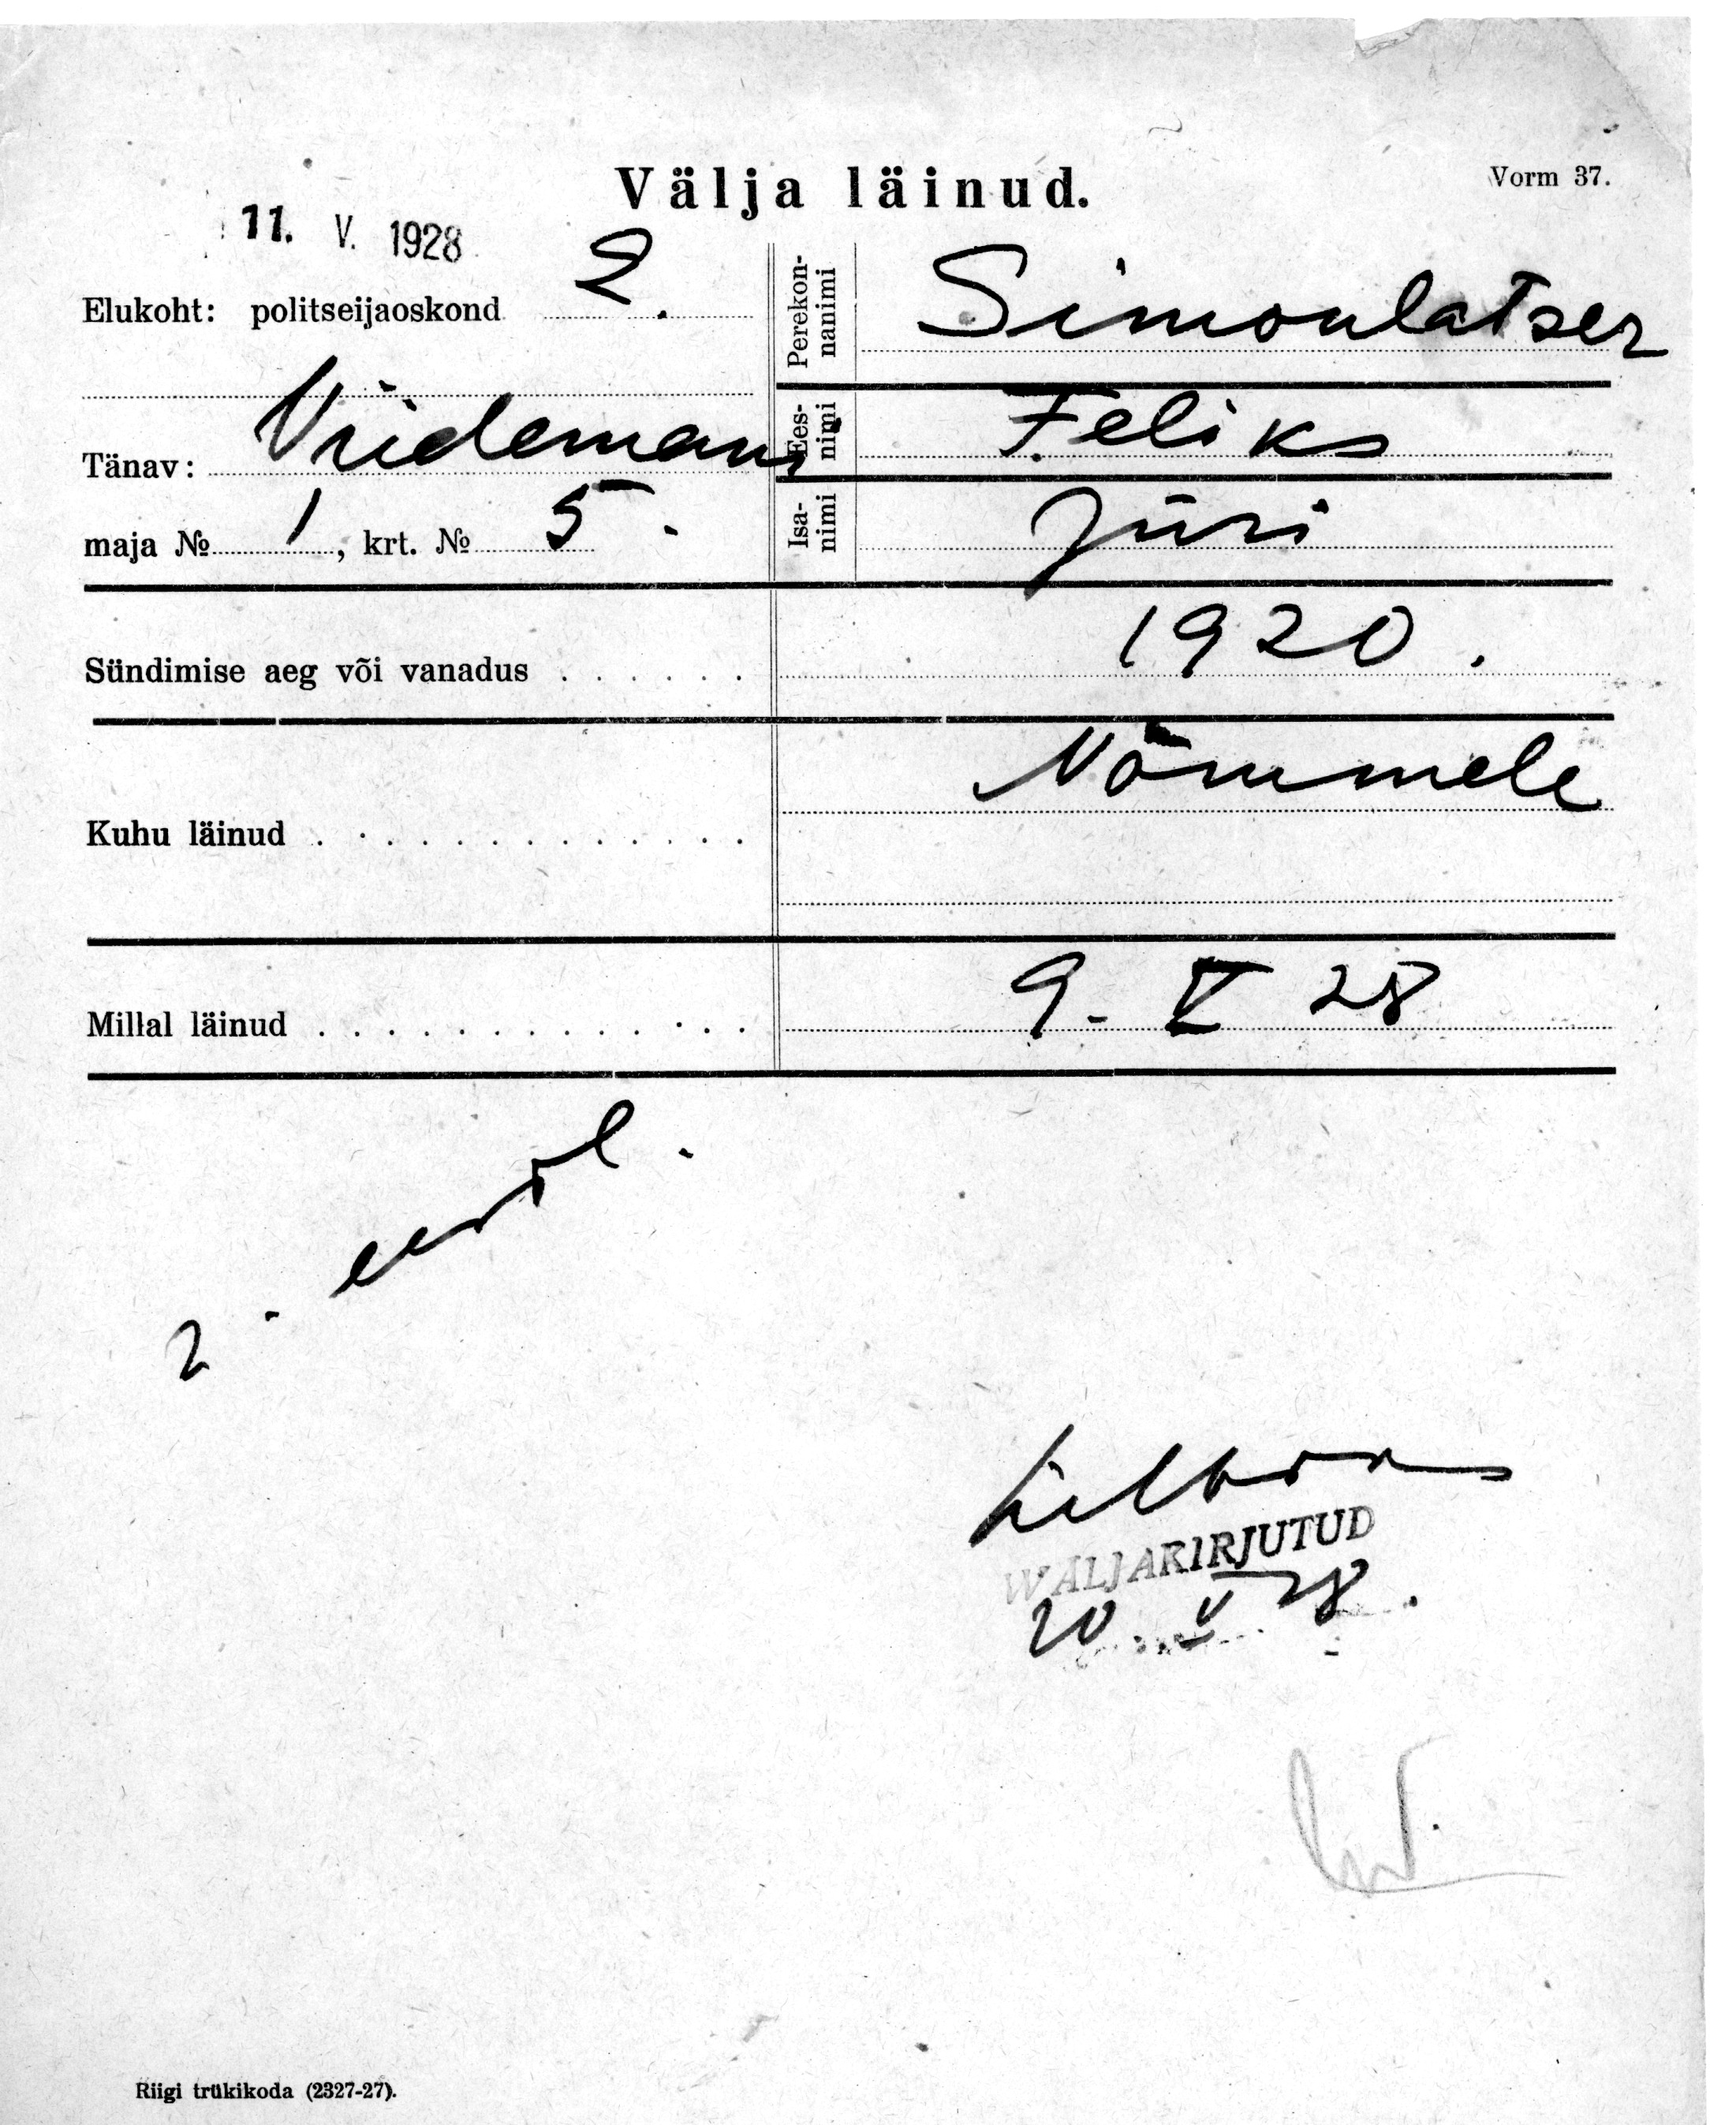 Välja läinud.
Vorm 37.
11. V. 1928
Elukoht: politseijaoskond 2.
Tänav: Viidemann
maja № 1, krt. № 5.
Perekonnanimi Simonlatser
Eesnimi Feliks
Isanimi Jüri
Sündimise aeg või vanadus . . . . . . 1920.
Kuhu läinud . . . . . . . . . . . . . Nõmmele
Millal läinud . . . . . . . . . . . . . 9. V 28
2.
WÄLJAKIRJUTUD
20. V 28.
Riigi trükikoda (2327-27).